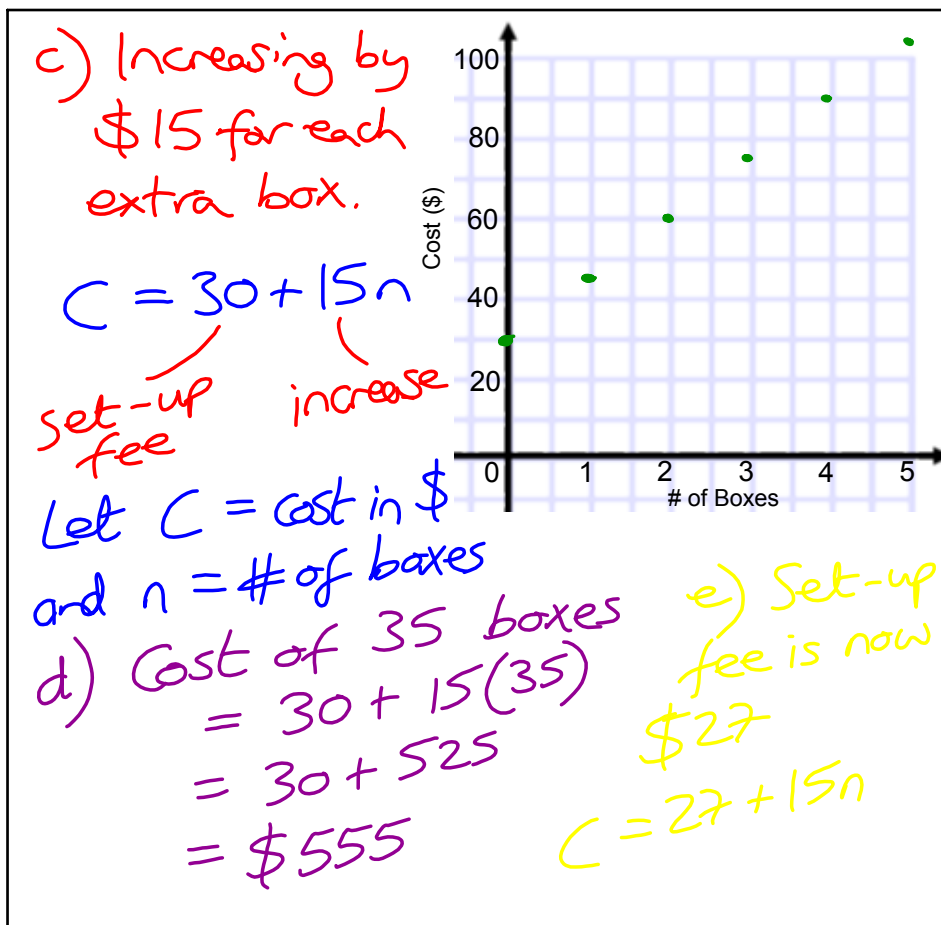 c) Increasing by
$15 for each
extra box.
C = 30 + 15n
set-up
fee
increase
Let C = cost in $
and n = # of boxes
100
80
60
40
20
0 1 2 3 4 5
Cost ($)
# of Boxes
d) Cost of 35 boxes
= 30 + 15(35)
= 30 + 525
= $555
e) Set-up
fee is now
$27
C = 27 + 15n